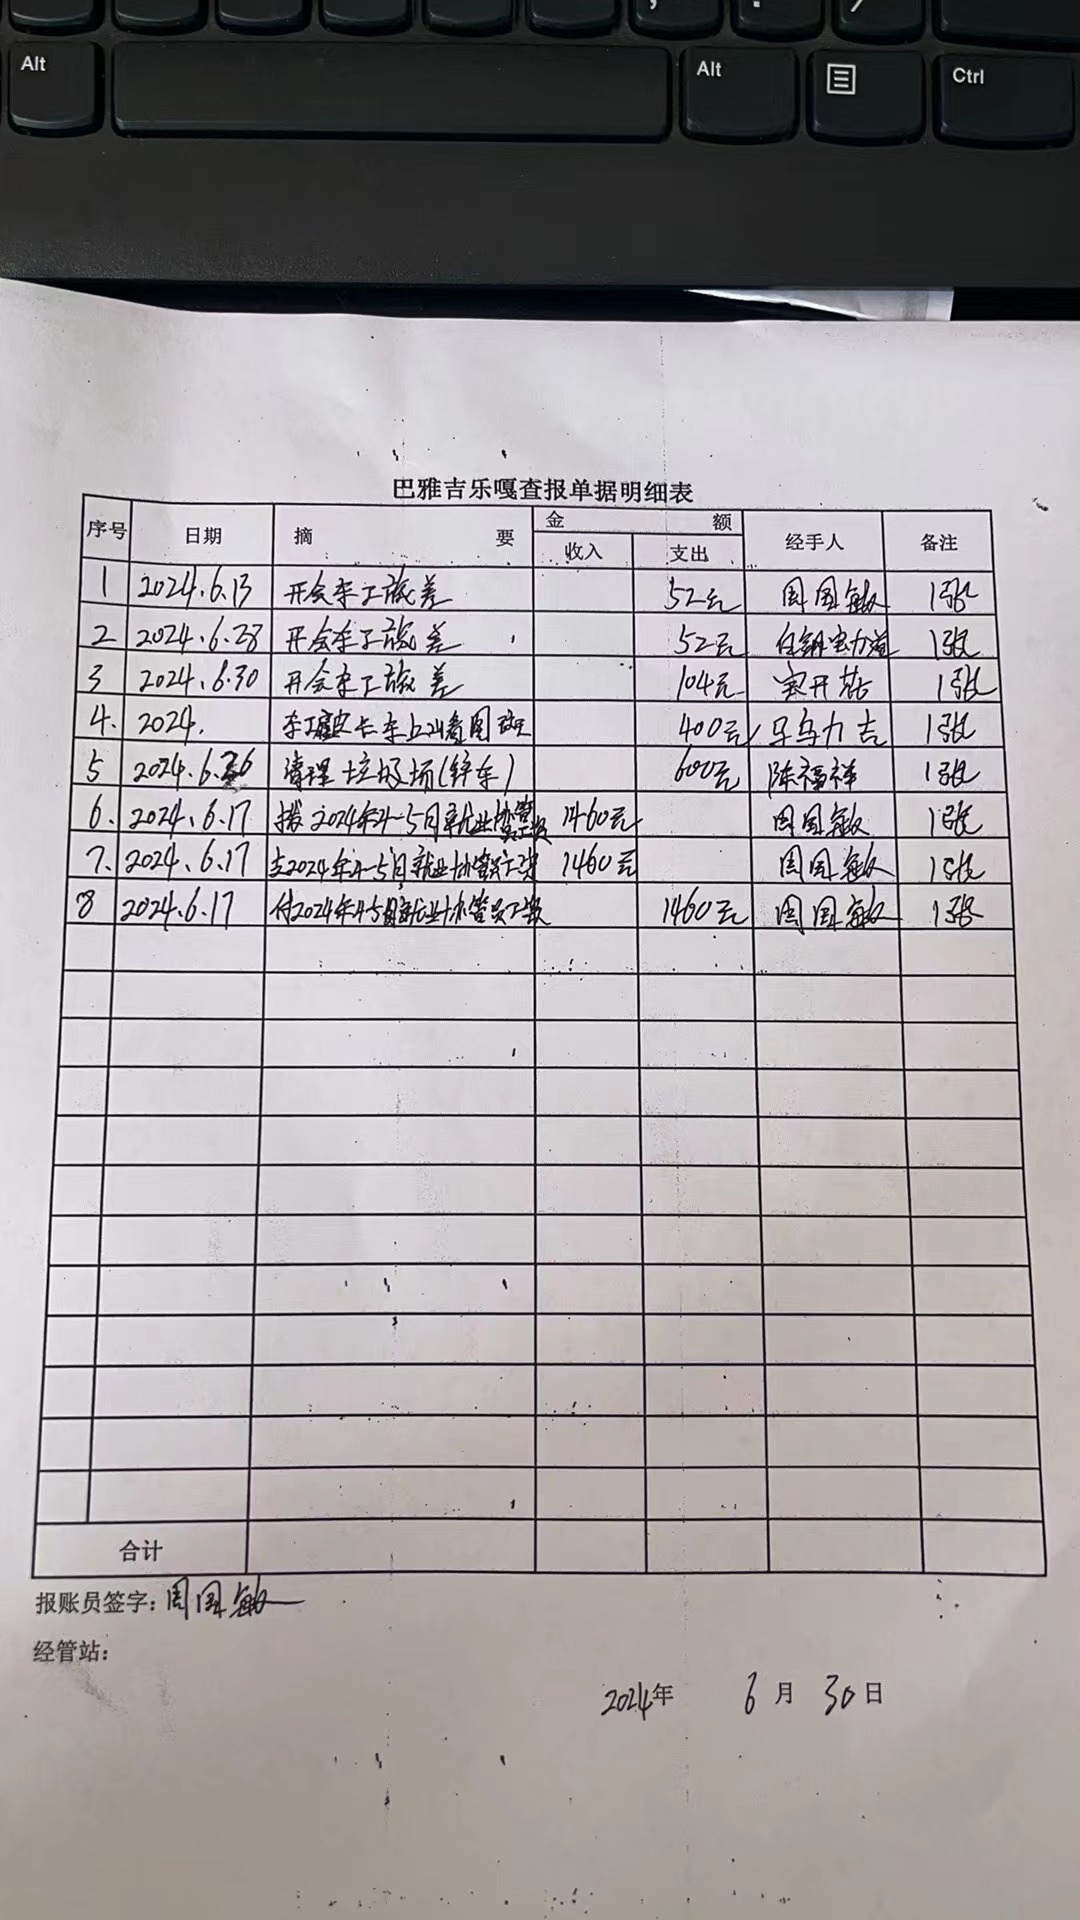 Alt Alt Ctrl
巴雅吉乐嘎查报单据明细表
序号 日期 摘 要 金 额 经手人 备注
收入 支出
1 2024.6.13 开会车工旅差 52元 周国敏 1张
2 2024.6.28 开会车工旅差 52元 1张
3 2024.6.30 开会车工旅差 104元 1张
4. 2024. 车上山看图斑 400元 马乌力吉 1张
5 2024.6.26 清理垃圾场(铲车) 600元 陈福祥 1张
6. 2024.6.17 拨2024年4-5月就业协管员工资 1460元 周国敏 1张
7. 2024.6.17 支2024年4-5月就业协管员工资 1460元 周国敏 1张
8 2024.6.17 付2024年4-5月就业协管员工资 1460元 周国敏 1张
合计
报账员签字:周国敏
经管站:
2024年 6月 30日